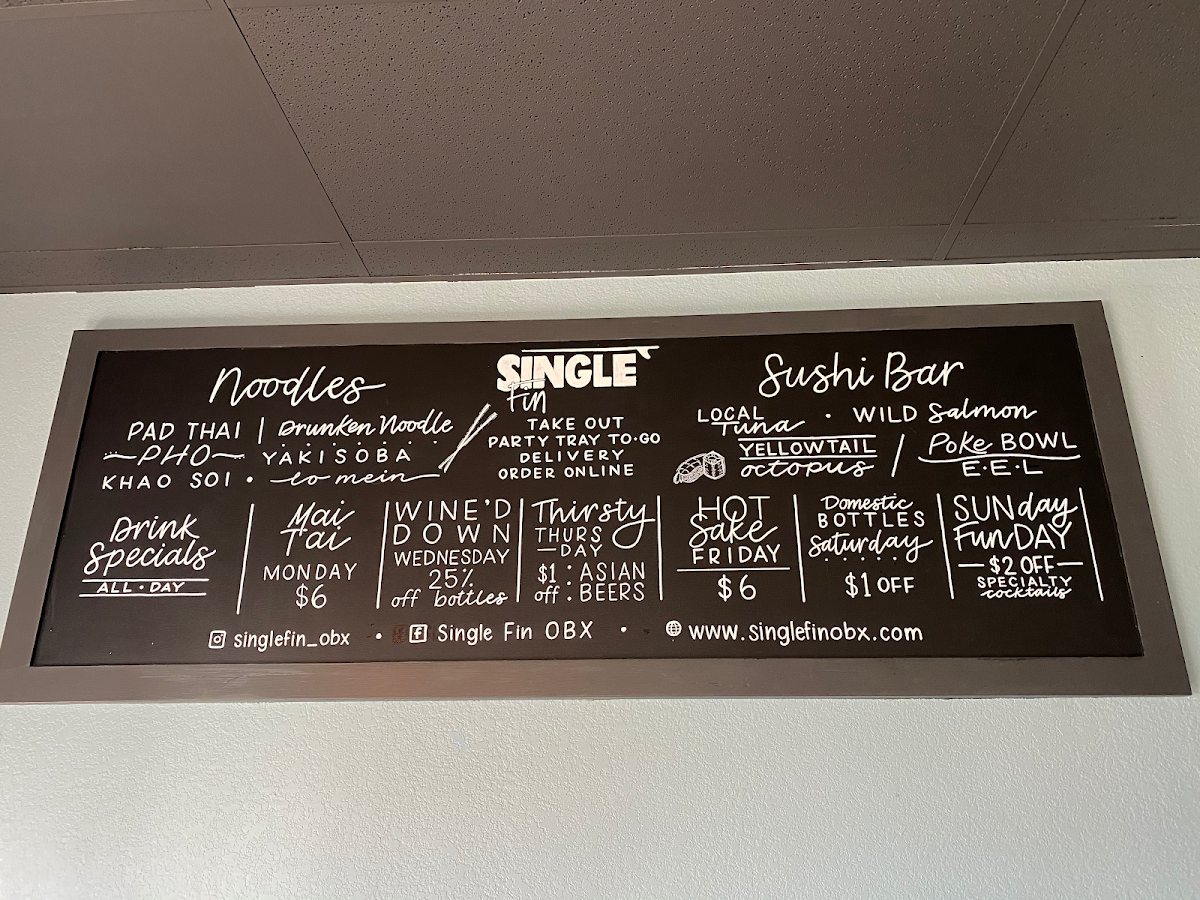 Noodles
PAD THAI | Drunken Noodle
PHO YAKISOBA
KHAO SOI • lo mein
SINGLE
fin
TAKE OUT
PARTY TRAY TO-GO
DELIVERY
ORDER ONLINE
Sushi Bar
LOCAL Tuna • WILD Salmon
YELLOWTAIL / Poke BOWL
octopus E•E•L
Drink
Specials
ALL • DAY
Mai
Tai
MONDAY
$6
WINE'D
DOWN
WEDNESDAY
25%
off bottles
Thirsty
THURS
—DAY
$1 : ASIAN
off : BEERS
HOT
Sake
FRIDAY
$6
Domestic
BOTTLES
Saturday
$1 OFF
SUNday
FunDAY
—$2 OFF—
SPECIALTY
cocktails
singlefin_obx • f Single Fin OBX • www.singlefinobx.com